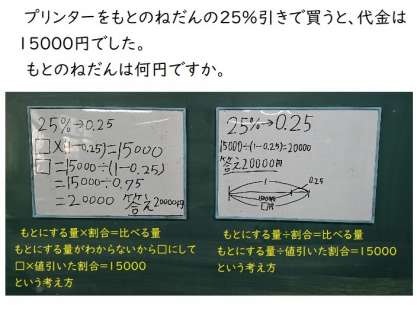 プリンターをもとのねだんの25%引きで買うと、代金は
15000円でした。
もとのねだんは何円ですか。
25%→0.25
□×(1-0.25)=15000
□=15000÷(1-0.25)
=15000÷0.75
=20000 答え20000円
もとにする量×割合=比べる量
もとにする量がわからないから□にして
□×値引いた割合=15000
という考え方
25%→0.25
15000÷(1-0.25)=20000
答え20000円
1
0.25
15000円
□円
もとにする量÷割合=比べる量
もとにする量÷値引いた割合=15000
という考え方